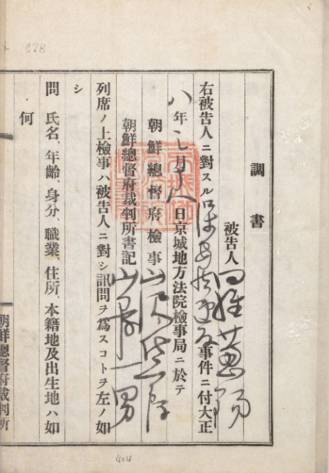 調書
被告人 羅蕙錫
右被告人ニ對スル保安法違反事件ニ付大正
八年三月十八日京城地方法院檢事局ニ於テ
朝鮮總督府檢事
朝鮮總督府裁判所書記
列席ノ上檢事ハ被告人ニ對シ訊問ヲ爲スコトヲ左ノ如
シ
問 氏名、年齡、身分、職業、住所、本籍地及出生地ハ如
何
朝鮮總督府裁判所